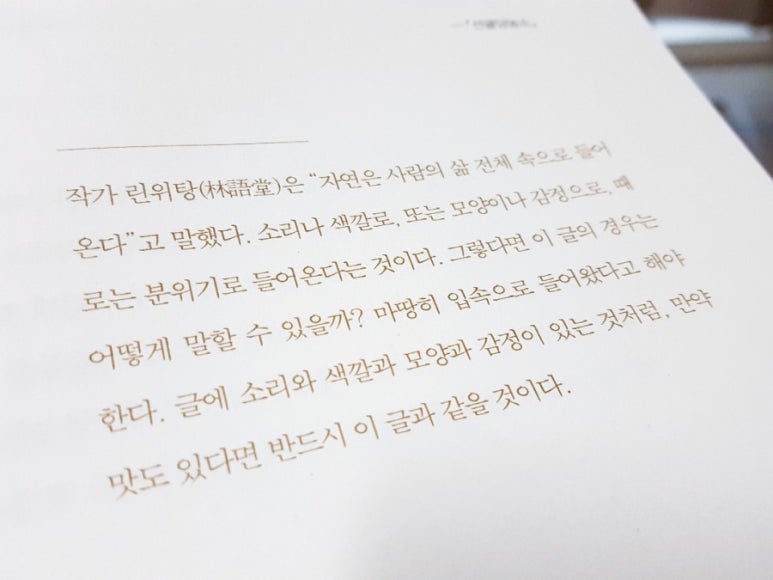 작가 린위탕(林語堂)은 “자연은 사람의 삶 전체 속으로 들어
온다”고 말했다. 소리나 색깔로, 또는 모양이나 감정으로, 때
로는 분위기로 들어온다는 것이다. 그렇다면 이 글의 경우는
어떻게 말할 수 있을까? 마땅히 입속으로 들어왔다고 해야
한다. 글에 소리와 색깔과 모양과 감정이 있는 것처럼, 만약
맛도 있다면 반드시 이 글과 같을 것이다.